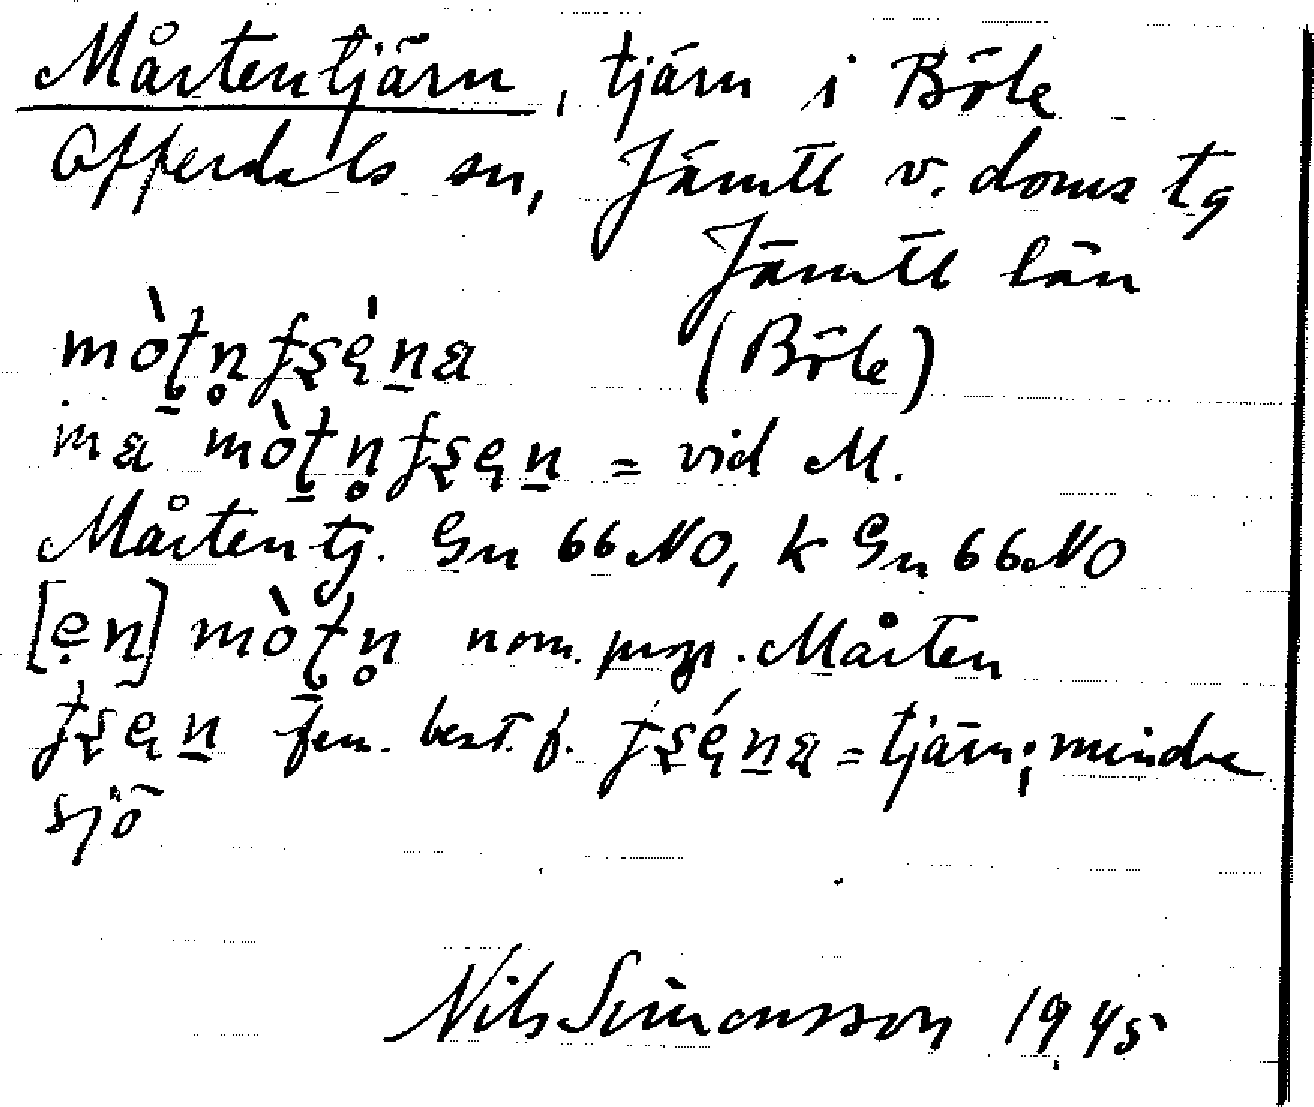 Mårtentjärn, tjärn i Böle
Offerdals sn, Jämtl v. doms tg
Jämtl län
mò̀ʈn̥ ʈʂèna (Böle)
ma mòʈn̥ʈʂen = vid M.
Mårten tj. Gn 66 NO, k Gn 66 NO
[en] mòʈn̥ nom. prop. Mårten
ʈʂen fem. best. f. ʈʂéna = tjärn; mindre
sjö
Nils Simonsson 1945